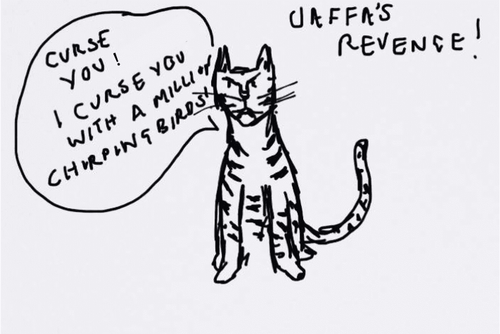 JAFFA'S
REVENGE!
CURSE
YOU!
I CURSE YOU
WITH A MILLION
CHIRPING BIRDS